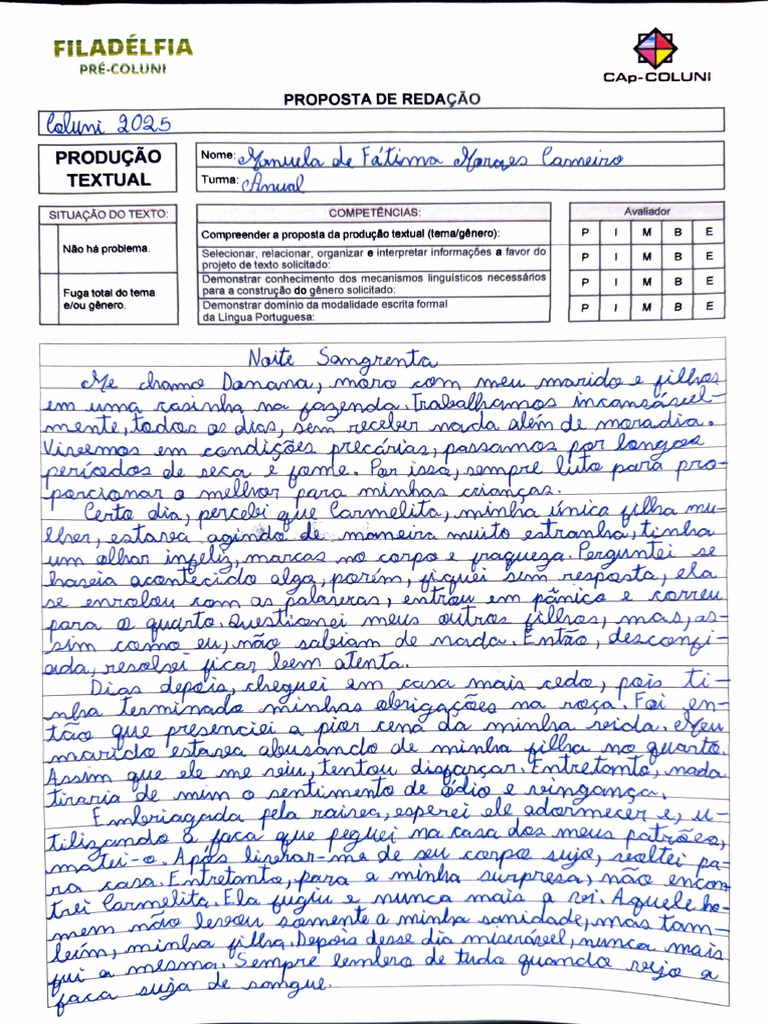 FILADÉLFIA
PRÉ-COLUNI
CAp-COLUNI
PROPOSTA DE REDAÇÃO
Coluni 2025
PRODUÇÃO
TEXTUAL
Nome: Manuela de Fátima Moraes Carneiro
Turma: Anual
SITUAÇÃO DO TEXTO:
Não há problema.
Fuga total do tema
e/ou gênero.
COMPETÊNCIAS:
Compreender a proposta da produção textual (tema/gênero):
Selecionar, relacionar, organizar e interpretar informações a favor do
projeto de texto solicitado:
Demonstrar conhecimento dos mecanismos linguísticos necessários
para a construção do gênero solicitado:
Demonstrar domínio da modalidade escrita formal
da Língua Portuguesa:
Avaliador
P I M B E
P I M B E
P I M B E
P I M B E
Noite Sangrenta
Me chamo Danana, moro com meu marido e filhos
em uma casinha na fazenda. Trabalhamos incansável-
mente, todos os dias, sem receber nada além de moradia.
Vivemos em condições precárias, passamos por longos
períodos de seca e fome. Por isso, sempre luto para pro-
porcionar o melhor para minhas crianças.
Certo dia, percebi que Carmelita, minha única filha mu-
lher, estava agindo de maneira muito estranha, tinha
um olhar infeliz, marcas no corpo e fraqueza. Perguntei se
havia acontecido algo, porém, fiquei sem resposta, ela
se enrolou com as palavras, entrou em pânico e correu
para o quarto. Questionei meus outros filhos, mas, as-
sim como eu, não sabiam de nada. Então, desconfi-
ada, resolvi ficar bem atenta.
Dias depois, cheguei em casa mais cedo, pois ti-
nha terminado minhas obrigações na roça. Foi en-
tão que presenciei a pior cena da minha vida. Meu
marido estava abusando de minha filha no quarto.
Assim que ele me viu, tentou disfarçar. Entretanto, nada
tiraria de mim o sentimento de ódio e vingança.
Embriagada pela raiva, esperei ele adormecer e, u-
tilizando a faca que peguei na casa dos meus patrões,
matei-o. Após livrar-me de seu corpo sujo, voltei pa-
ra casa. Entretanto, para a minha surpresa, não encon
trei Carmelita. Ela fugiu e nunca mais a vi. Aquele ho-
mem não levou somente a minha sanidade, mas tam-
bém, minha filha. Depois desse dia miserável, nunca mais
fui a mesma. Sempre lembro de tudo quando vejo a
faca suja de sangue.